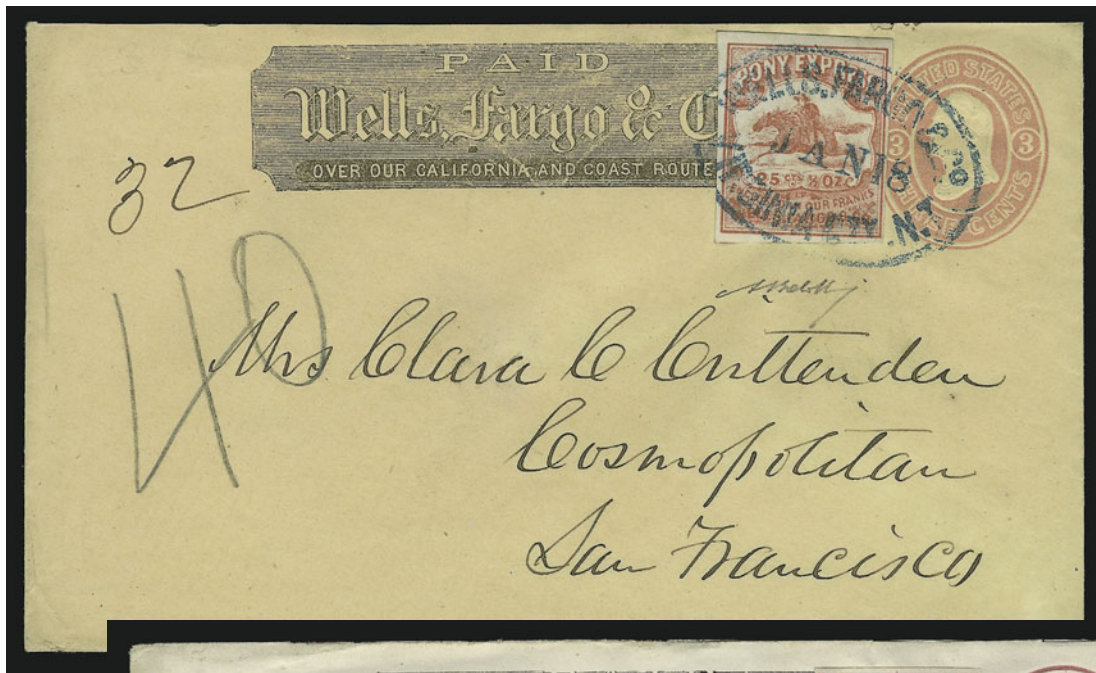 PAID
Wells, Fargo & C
OVER OUR CALIFORNIA AND COAST ROUTE
PONY EXPRESS
25 CTS ½ OZ.
OUR FRANKS
WELLS, FARGO & CO
JAN 18
CITY N.T.
UNITED STATES
3 3
THREE CENTS
32
40
Mrs Clara C Crittenden
Cosmopolitan
San Francisco